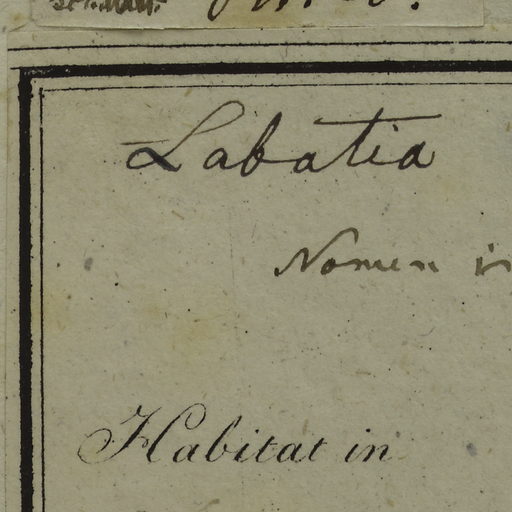 Labatia
Nomen in
Habitat in